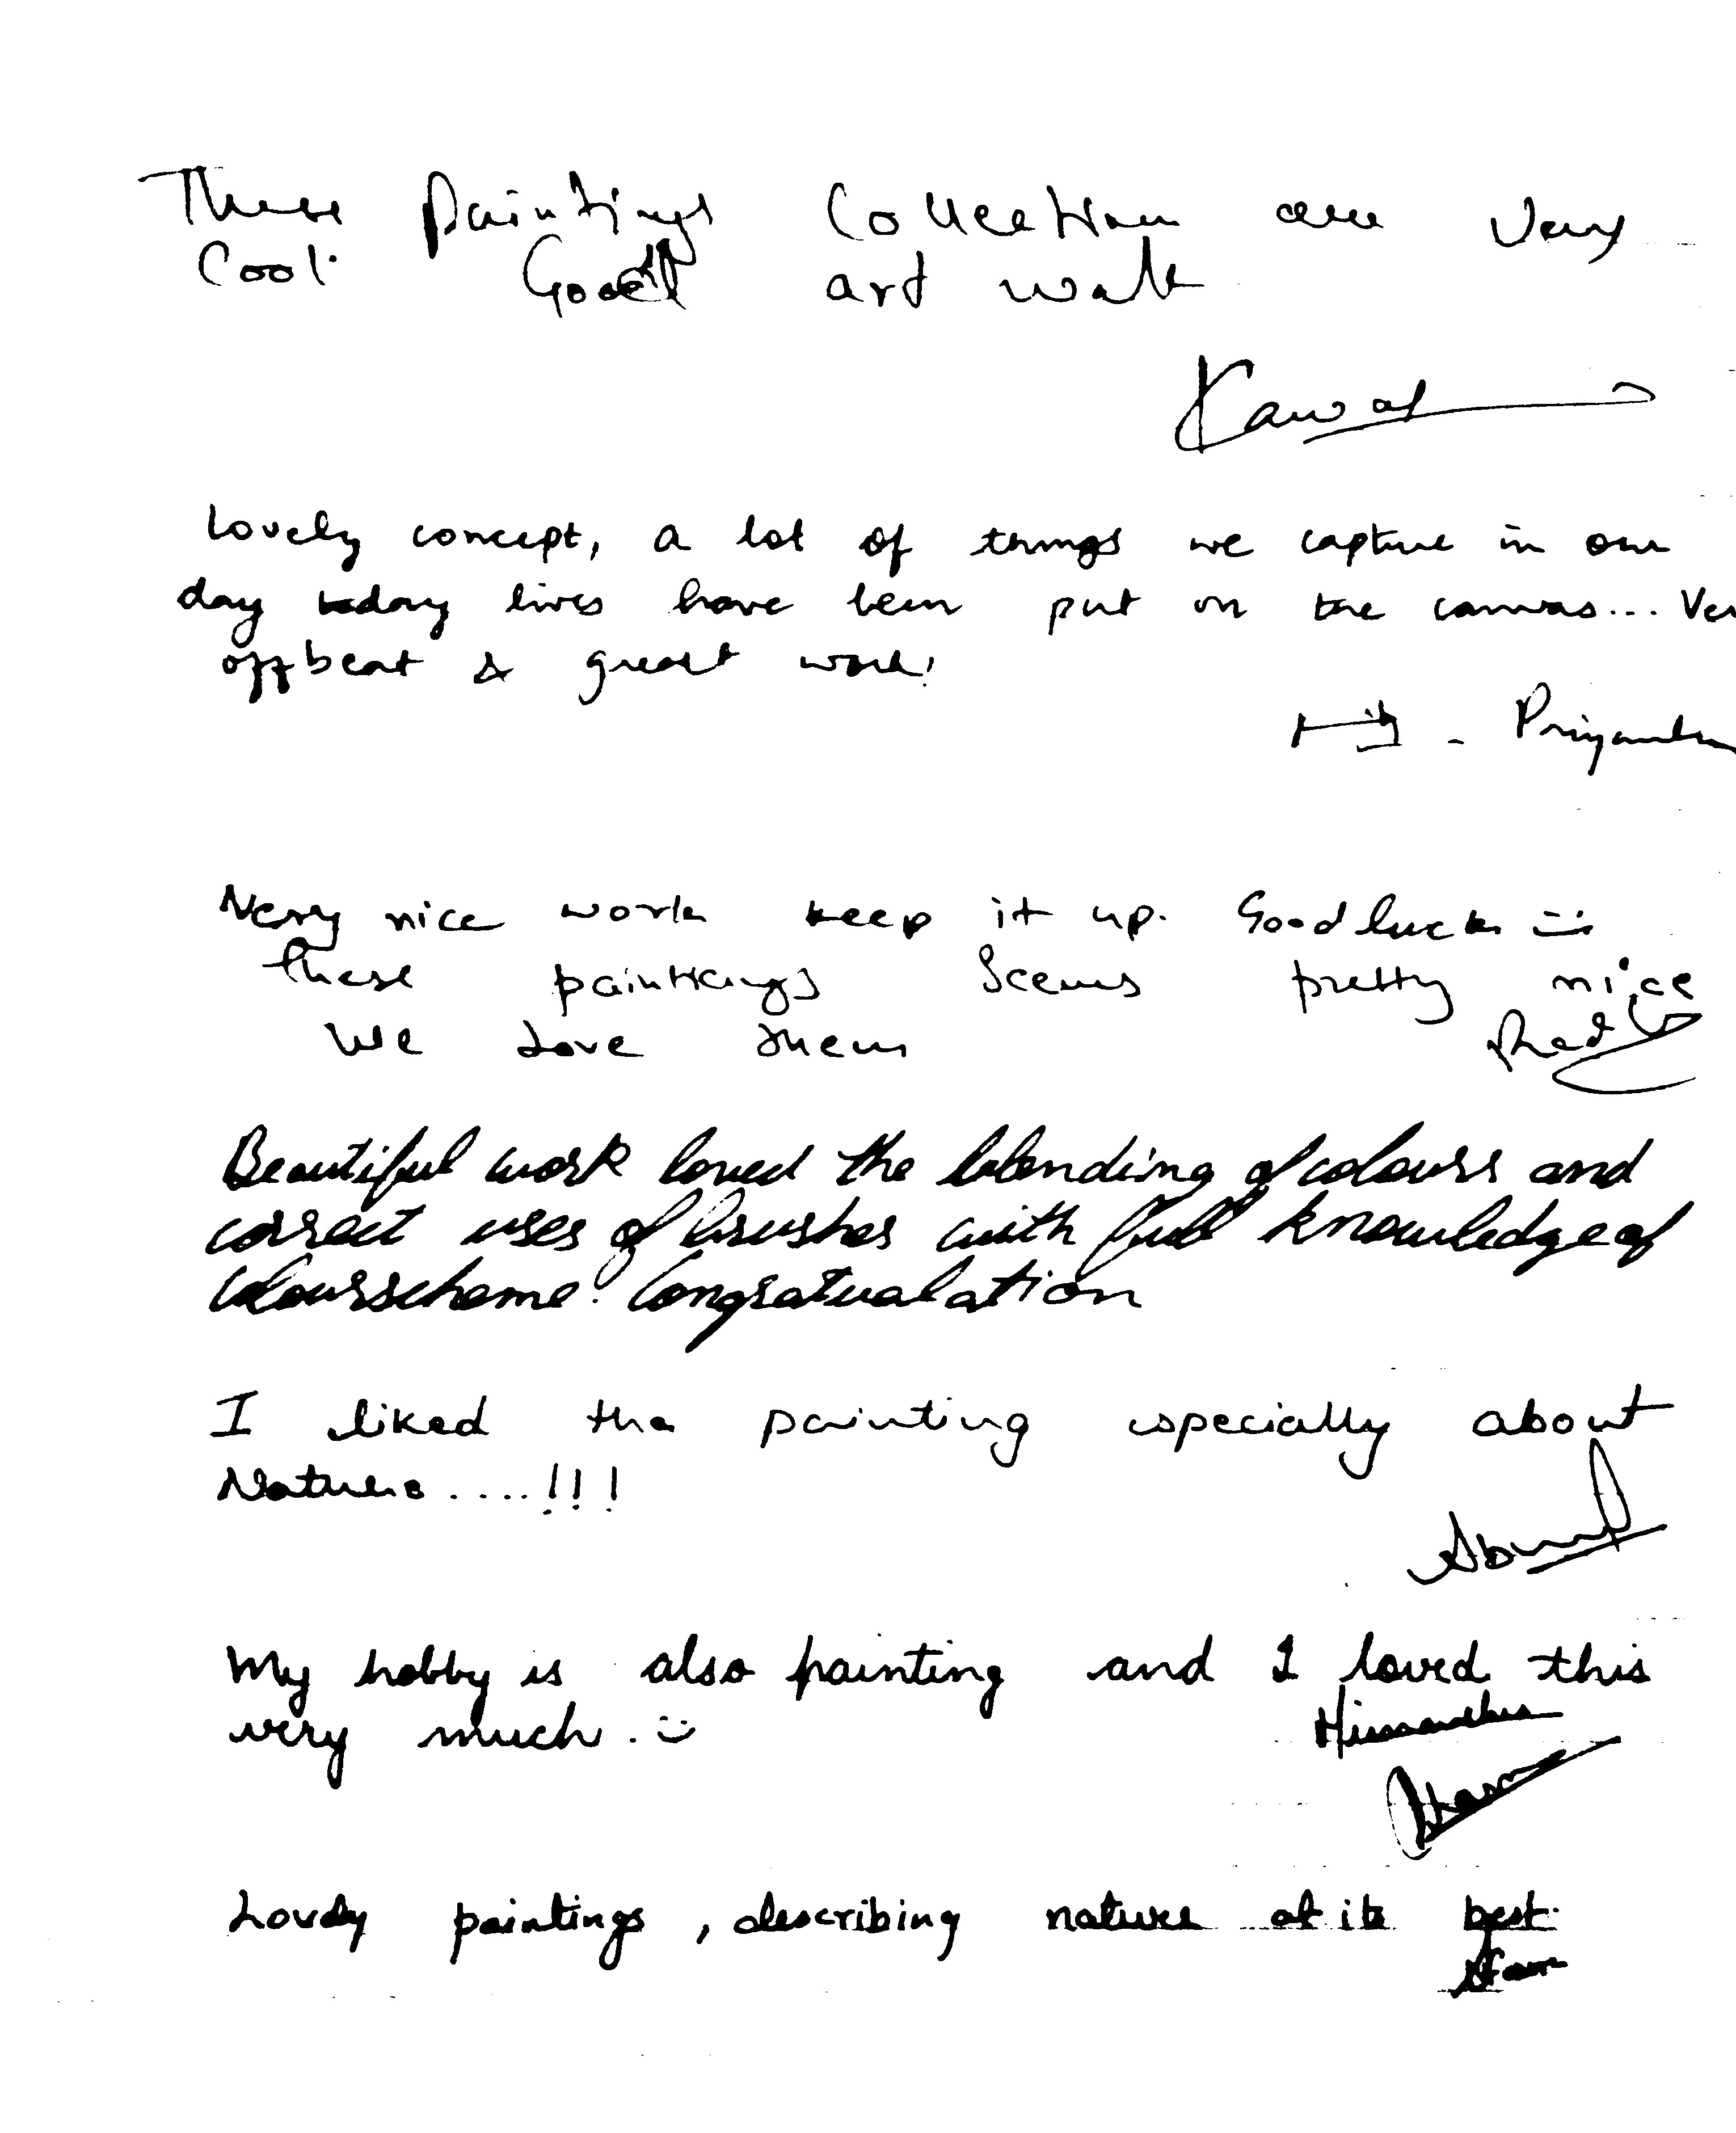 These Paintings Collection are Very
Cool. Good art work
Kawal
Lovely concept, a lot of things we capture in our
day today lives have been put on the canvas... Ver
offbeat & great work!
- Priyanka
Very nice work keep it up. Good luck :)
These paintings Seems pretty nice
We Love them
Beautiful work loved the blending of colours and
correct uses of brushes with full knowledge of
colourscheme. Congratualation
I liked the painting especially about
Nature....!!!
My hobby is also painting and I loved this
very much. :)
Himanshu
Lovely paintings, describing nature at its best.